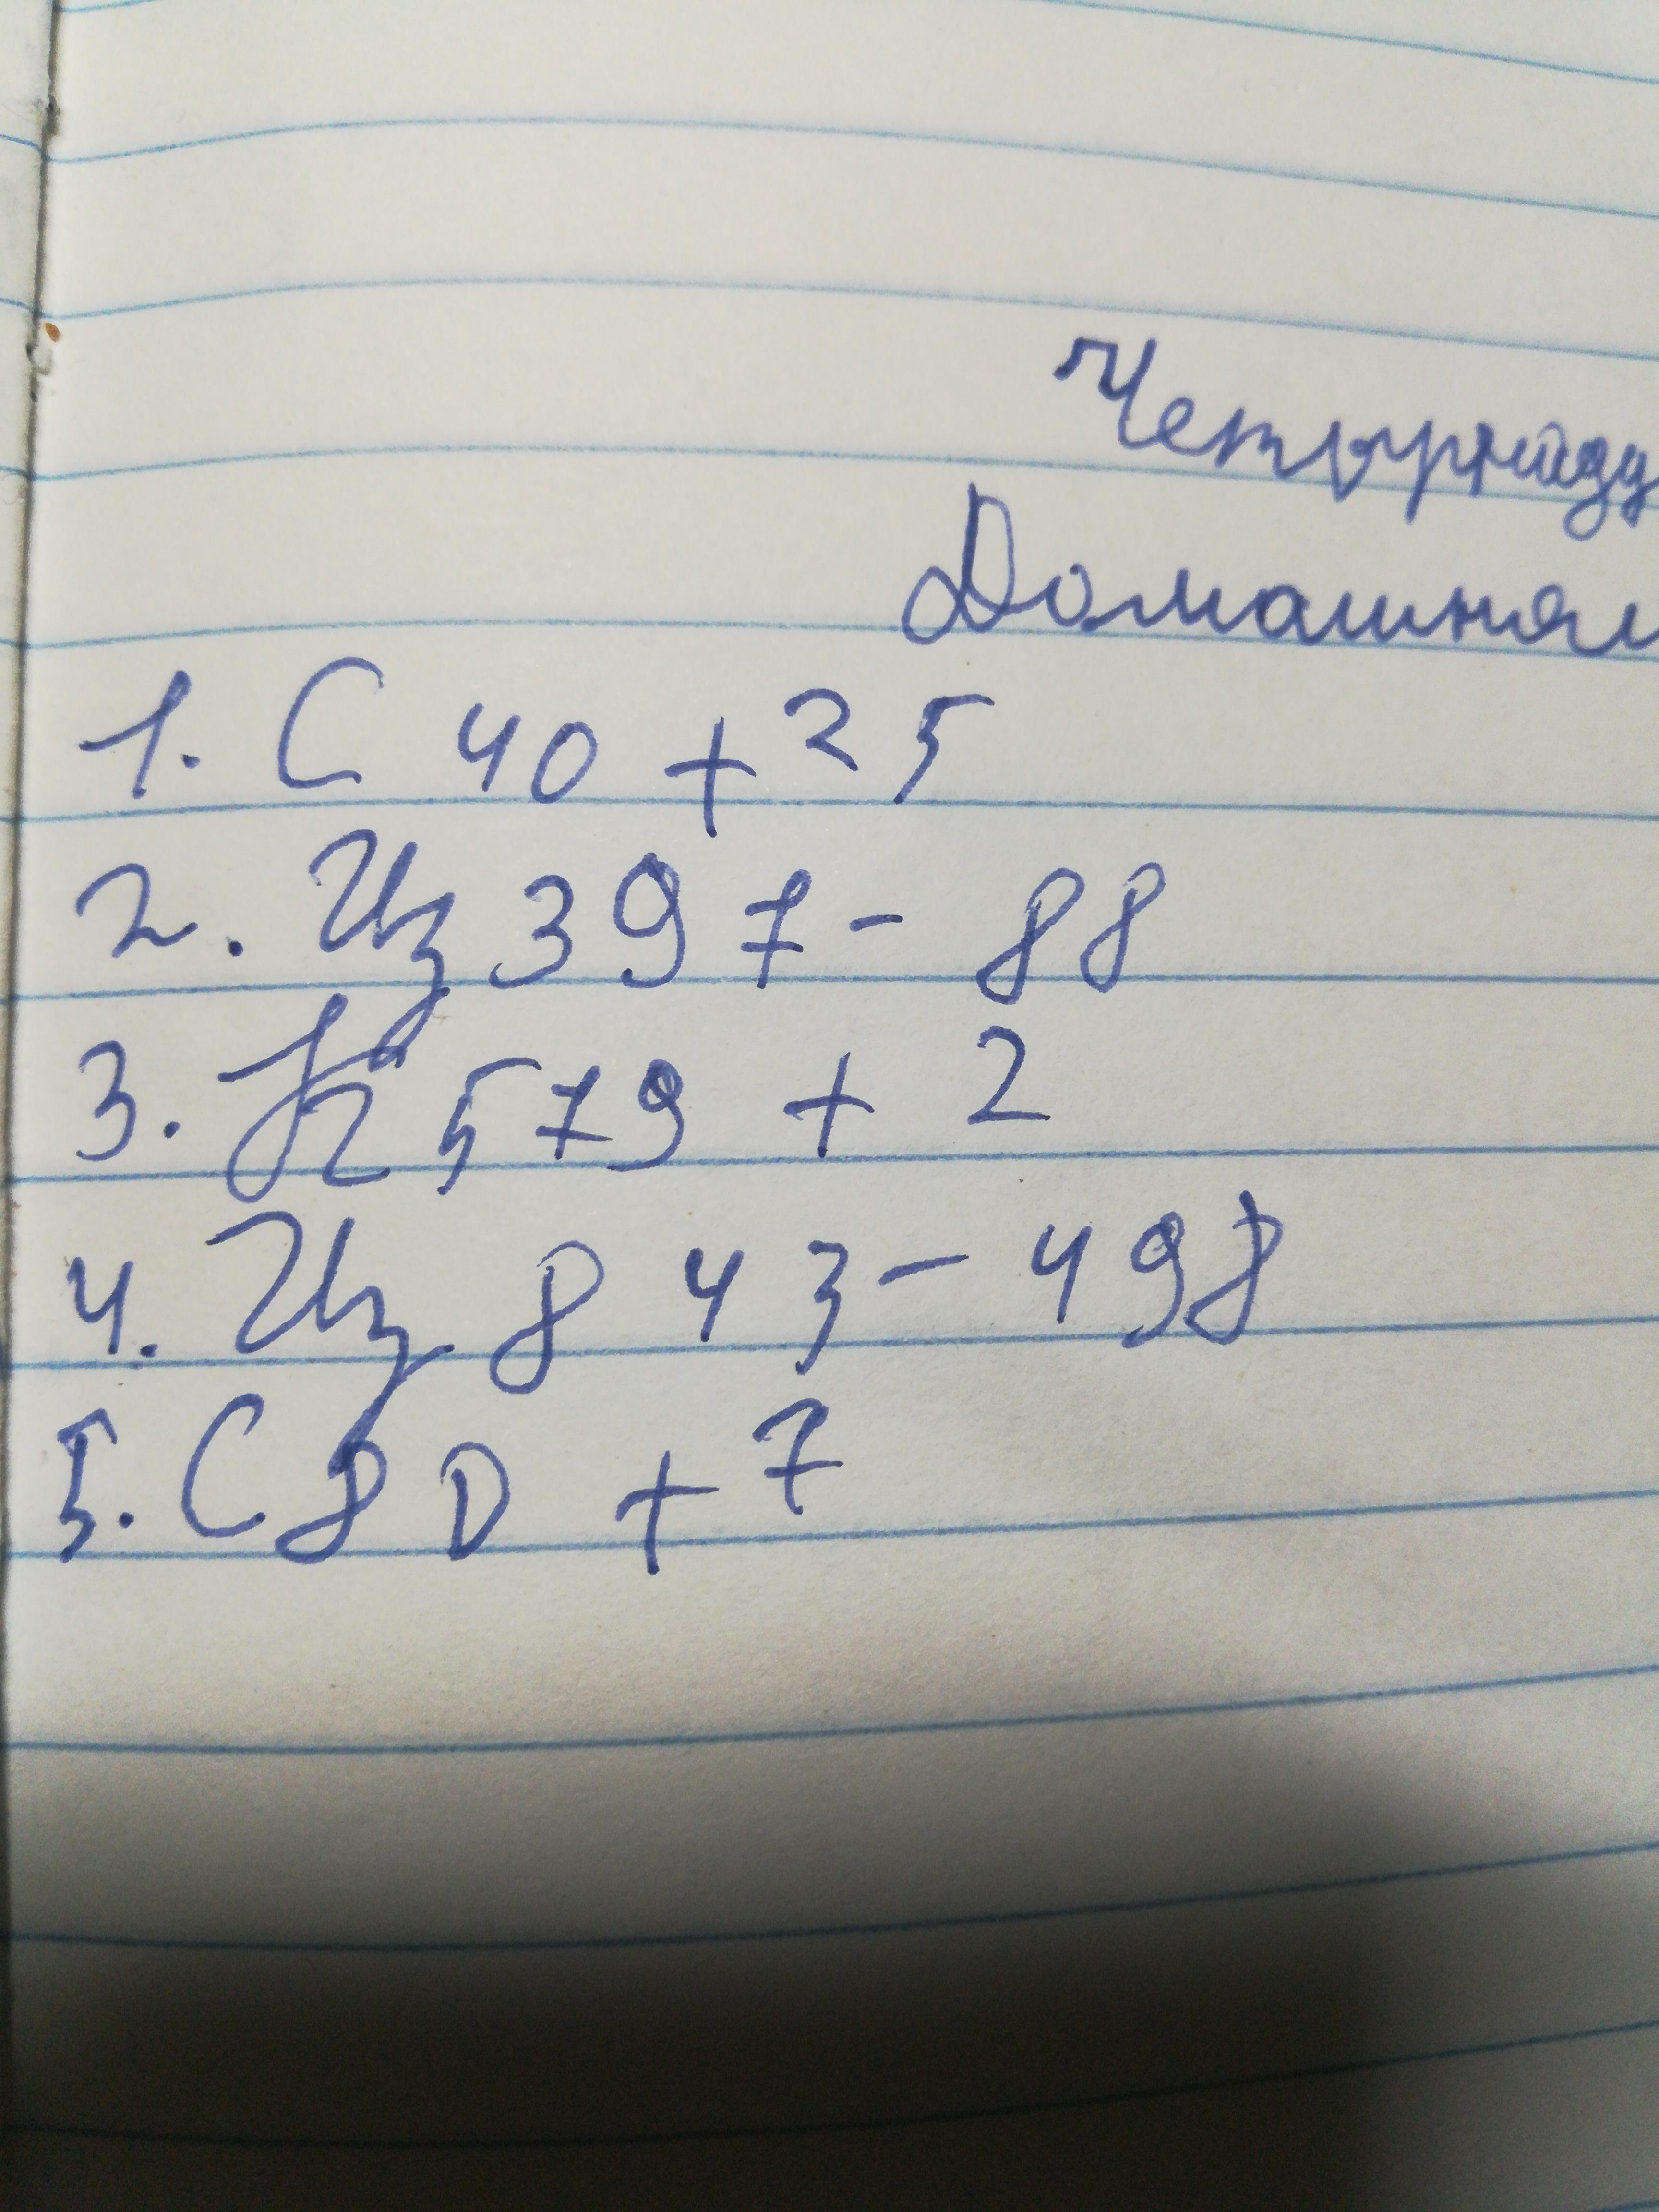 Четырнадц
Домашняя
1. С 40 + 25
2. Из 397 - 88
3. К 2579 + 2
4. Из 843 - 498
5. С 80 + 7